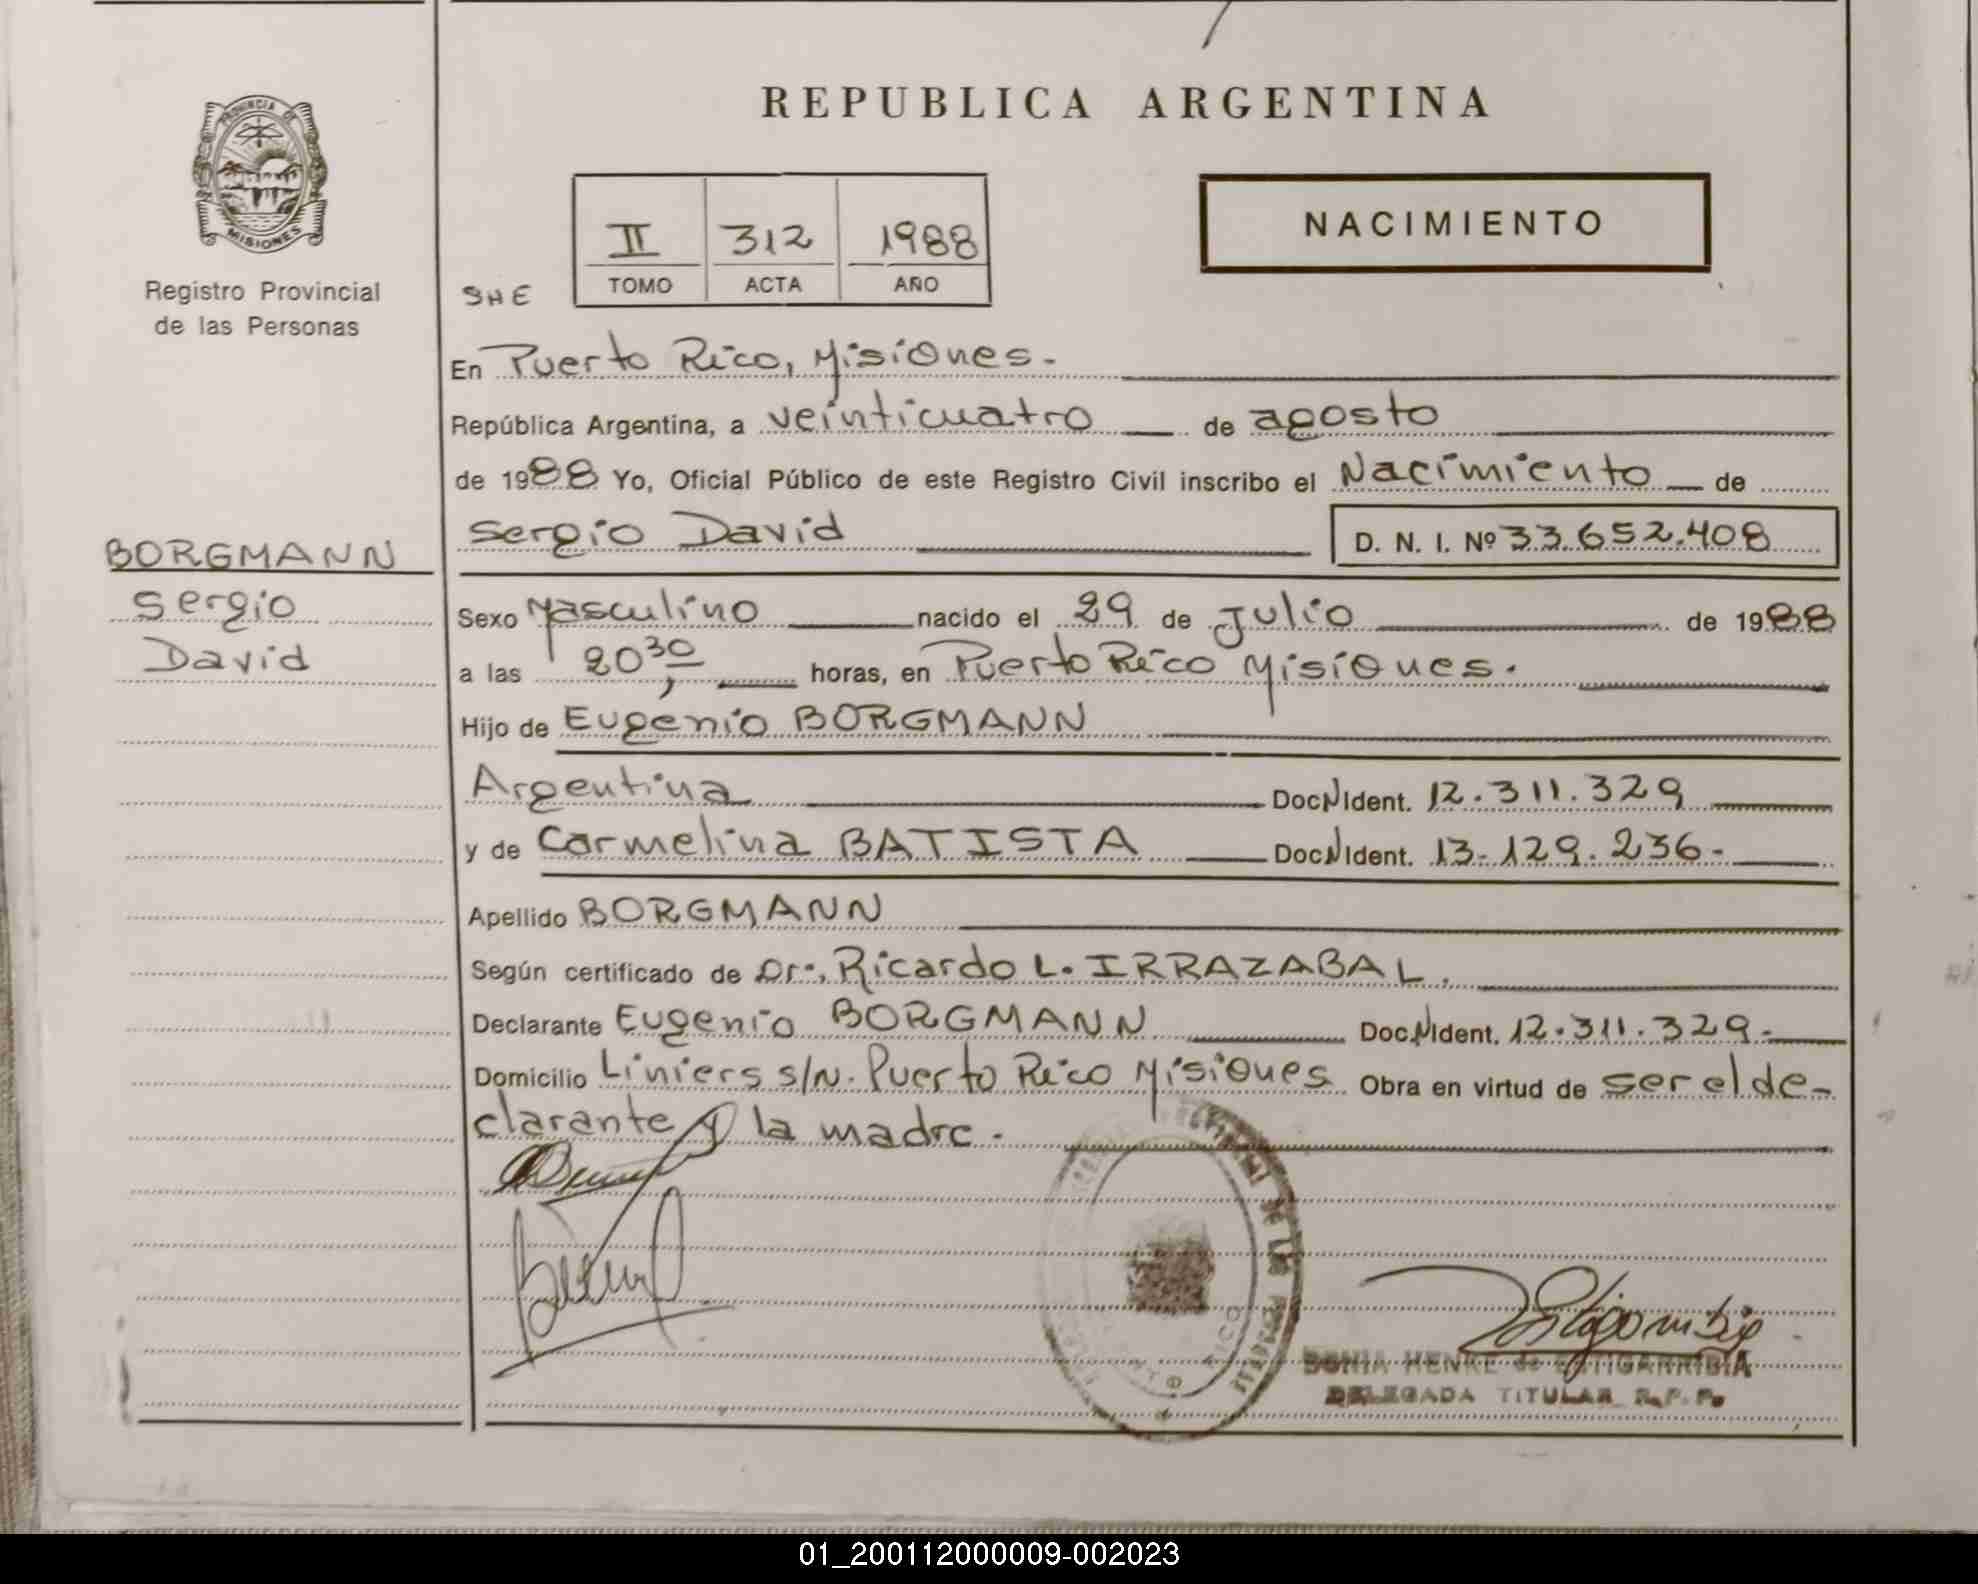 REPUBLICA ARGENTINA
PROVINCIA DE
MISIONES
Registro Provincial
de las Personas
II 312 1988
TOMO ACTA AÑO
NACIMIENTO
SHE
En Puerto Rico, Misiones.-
República Argentina, a veinticuatro de agosto
de 1988 Yo, Oficial Público de este Registro Civil inscribo el Nacimiento de
Sergio David D. N. I. Nº 33.652.408
BORGMANN
Sergio
David
Sexo Masculino nacido el 29 de Julio de 1988
a las 20,30 horas, en Puerto Rico Misiones.
Hijo de Eugenio BORGMANN
Argentina Doc N Ident. 12.311.329
y de Carmelina BATISTA Doc N Ident. 13.129.236-
Apellido BORGMANN
Según certificado de Dr:, Ricardo L. IRRAZABAL.
Declarante Eugenio BORGMANN Doc. N Ident. 12.311.329.-
Domicilio Liniers s/N. Puerto Rico Misiones Obra en virtud de ser el de-
clarante y la madre.
DE LAS PERSONAS
RICO
SONIA HENKE de ESTIGARRIBIA
DELEGADA TITULAR R.P.P.
01_200112000009-002023